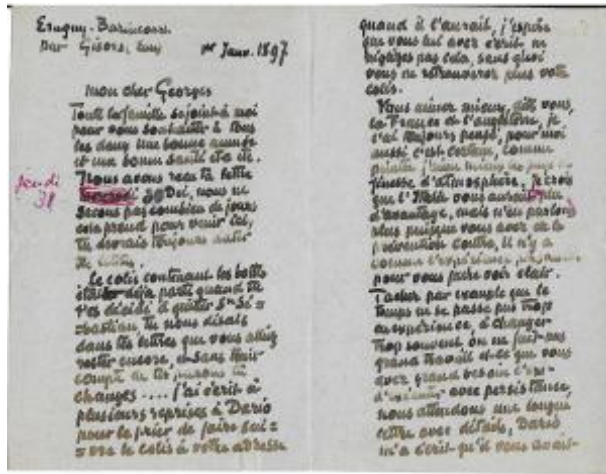 Eragny-Bazincourt
par Gisors, Eure
1er Janv. 1897
mon cher Georges
Toute la famille se joint à moi
pour vous souhaiter à tous
les deux une bonne année
et une bonne santé etc etc.
Nous avons reçu ta lettre
Mercredi 30 Dec, nous ne
Jeudi
31
savons pas combien de jours
cela prend pour venir ici,
tu devrais toujours dater
tes lettres.
Le colis contenant les bottes
était déjà parti quand tu
t'es décidé à quitter Sn Sé=
bastian, tu nous disais
dans tes lettres que vous alliez
rester encore, et sans tenir
compte de
changes .... j'ai écrit à
plusieurs reprises à Dario
pour le prier de faire sui=
vre le colis à votre adresse
quand il l'aurait, j'espère
que vous lui avez écrit, ne
négligez pas cela, sans quoi
vous ne retrouverez plus votre
colis.
Vous aimez mieux, dites vous,
la France de l'angleterre, je
l'ai toujours pensé, pour moi
aussi c'est certain, comme
peintre j'aime mieux
finesse d'atmosphère, je crois
que l'Italie vous aurait plu
d'avantage, mais n'en parlons
plus puisque vous avez de la
prévention contre, il n'y a
comme l'expérience personnelle
pour vous faire voir clair.
Tachez par exemple que le
temps ne se passe pas trop
en expérience, à changer
trop souvent on ne fait pas
grand travail et ce que vous
avez grand besoin c'est
avec persistance,
nous attendons une longue
lettre avec détails, Dario
m'a écrit qu'il vous avait